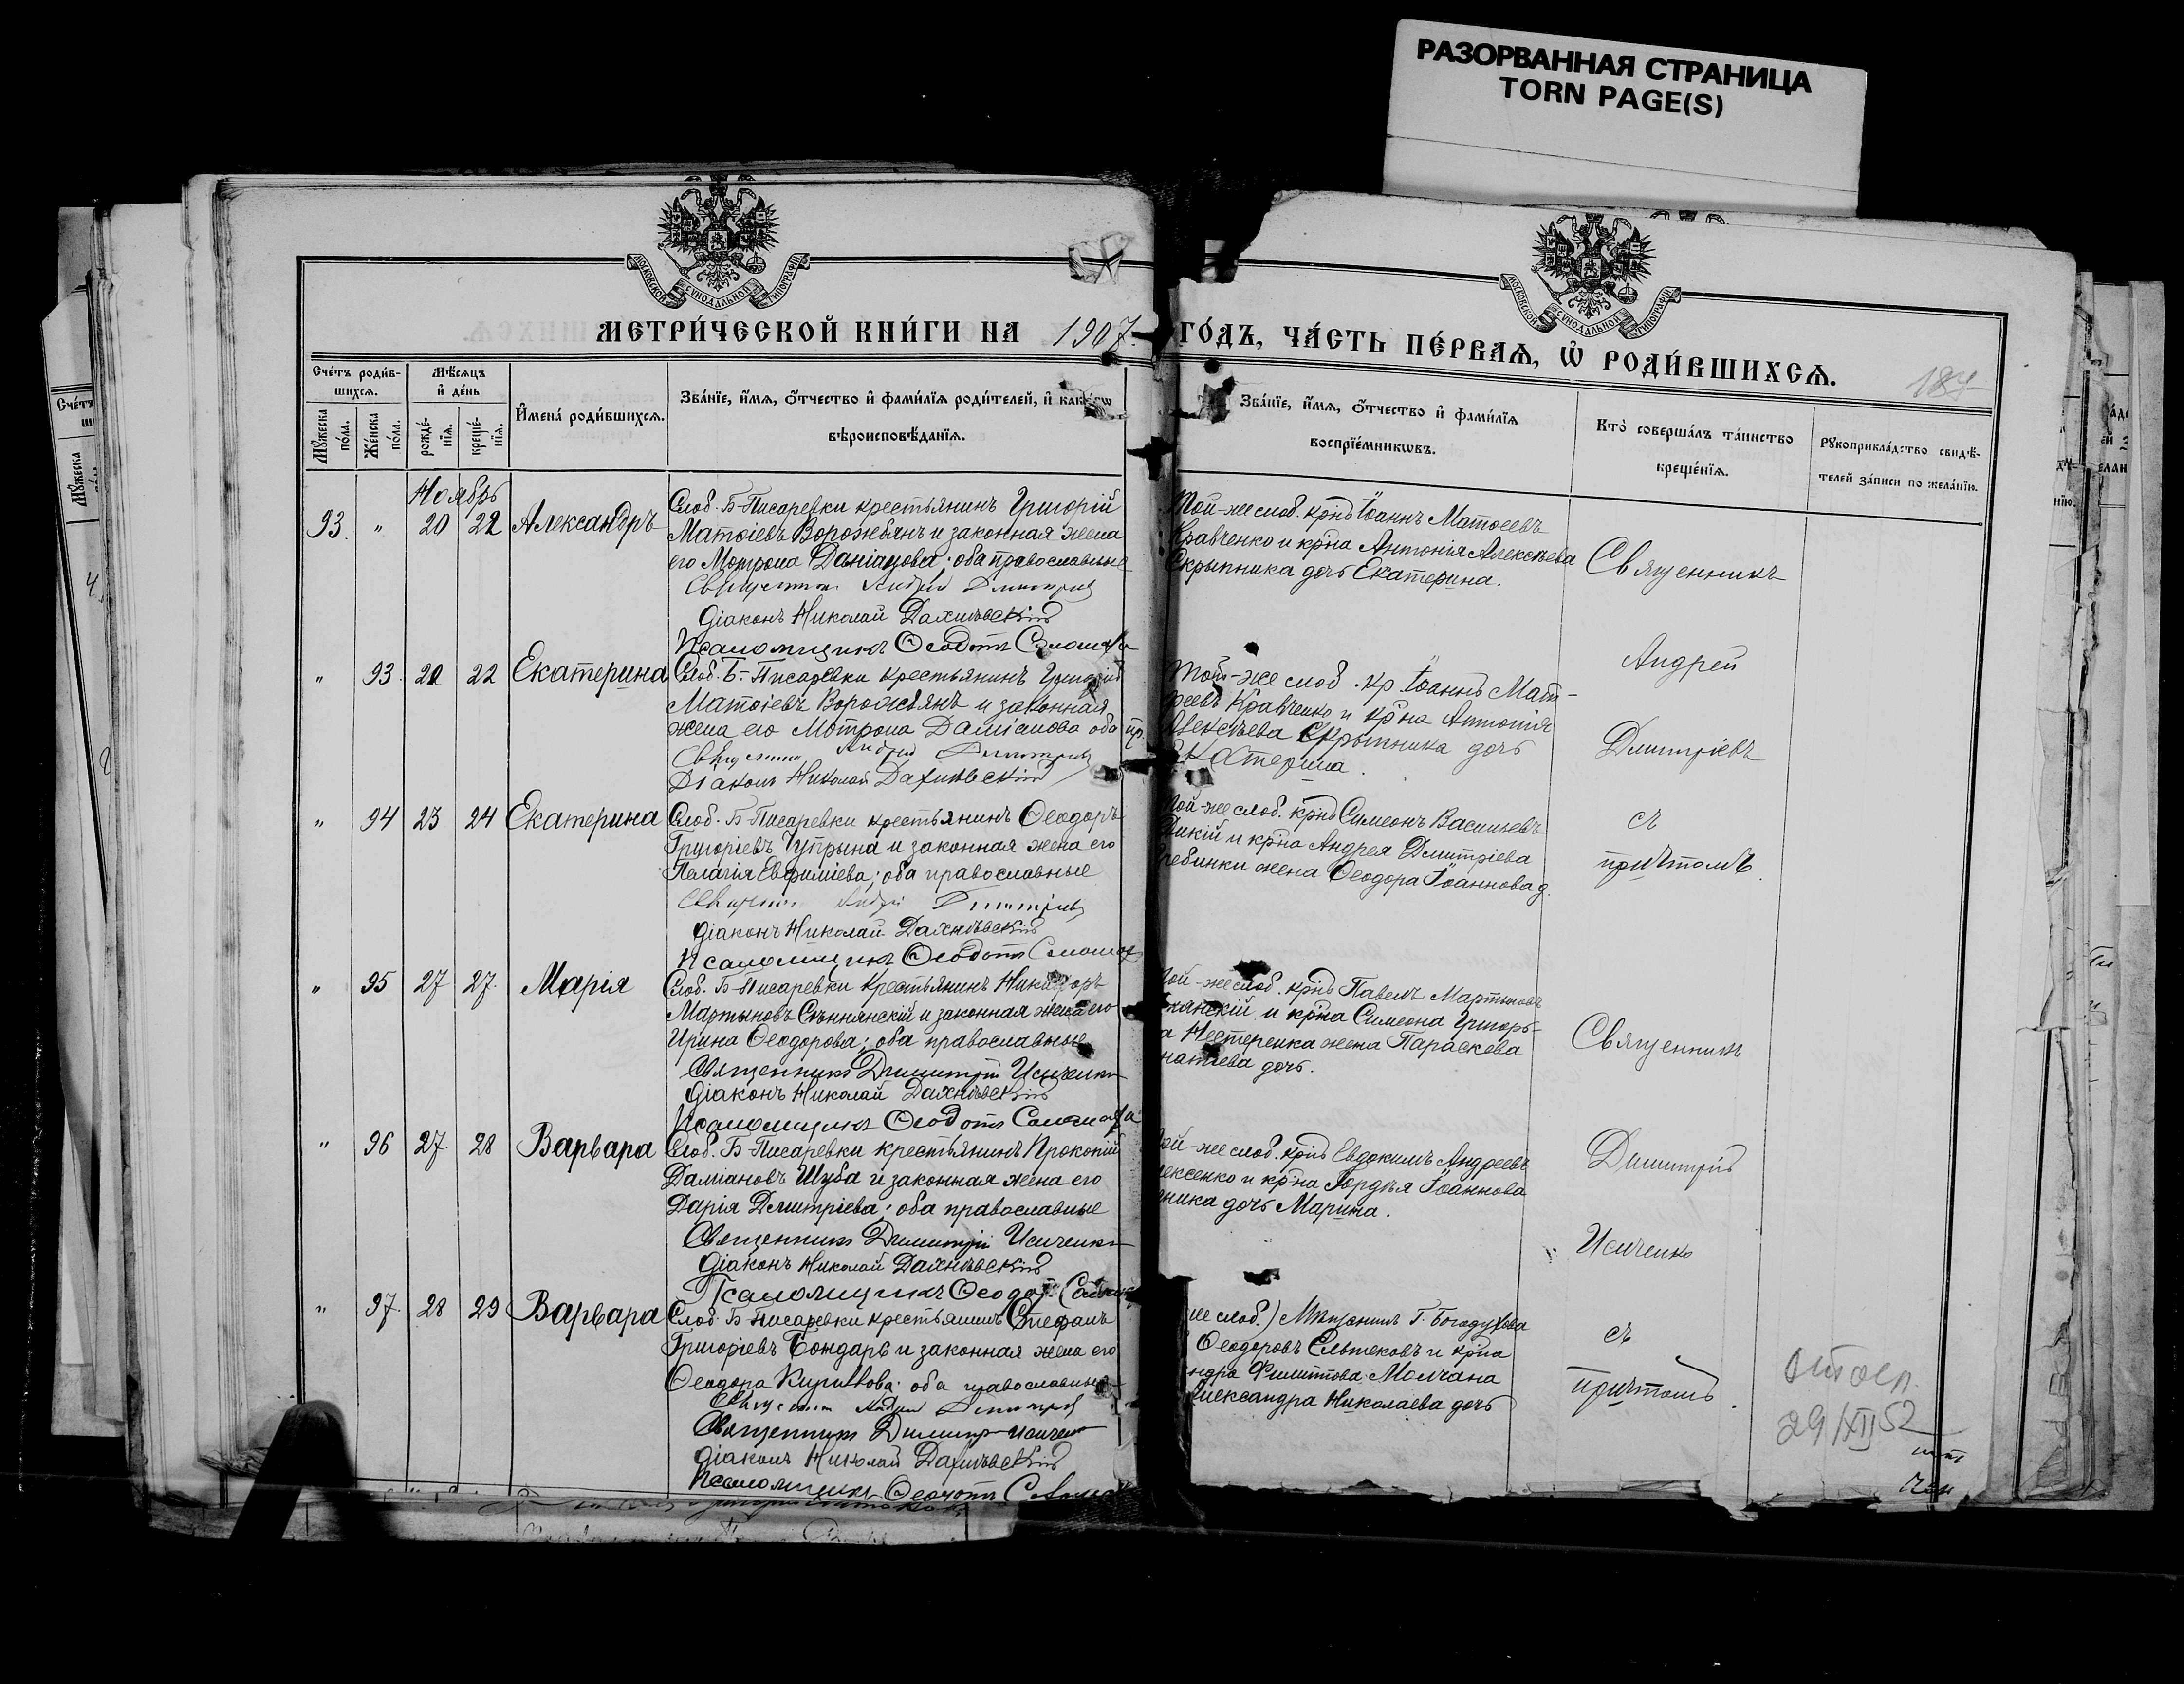 РАЗОРВАННАЯ СТРАНИЦА
TORN PAGE(S)
МОСКОВСКОЙ СѴНОДАЛЬНОЙ ТИПОГРАФІИ
МОСКОВСКОЙ СѴНОДАЛЬНОЙ ТИПОГРАФІИ
МЕТРИ́ЧЕСКОЙ КНИ́ГИ НА 1907. ГО́ДЪ, ЧА́СТЬ ПЕ́РВАѦ, Ѡ҆ РОДИ́ВШИХСѦ.
187
Сче́тъ роди́в-
шихсѧ.
Мꙋ́жеска по́ла.
Же́нска по́ла.
Мѣ́сѧцъ и҆ де́нь
рожде́-нїѧ.
креще́-нїѧ.
И҆мена̀ роди́вшихсѧ.
Зва́нїе, и҆́мѧ, ѻ҆́тчество и҆ фами́лїѧ роди́телей, и҆ како́гѡ
вѣроисповѣ́данїѧ.
Зва́нїе, и҆́мѧ, ѻ҆́тчество и҆ фами́лїѧ
воспрїе́мникѡвъ.
Кто̀ соверша́лъ та́инство
креще́нїѧ.
Рꙋкоприкла́дство свидѣ́-
телей за́писи по жела́нїю.
Ноябрь
93. " 20 22 Александръ
Слоб. Б-Писаревки крестьянинъ Григорій
Матѳіевъ Ворожбянъ и законная жена
его Мотрона Даміанова; оба православные
Священникъ Андрей Димитріевъ
Діаконъ Николай Дахнѣвскій
Псаломщикъ Ѳеодотъ
Той-же слоб. крнъ Іоаннъ Матѳеевъ
Кравченко и крна Антонія Алексѣева
Скрыпника дочь Екатерина.
Священникъ
Андрей
Дмитріевъ
съ
причтомъ.
" 93. 21 22 Екатерина
Слоб. Б-Писаревки крестьянинъ Григорій
Матѳіевъ Ворожбянъ и законная
жена его Мотрона Даміанова оба пр.
Священникъ Андрей Димитріевъ
Діаконъ Николай Дахнѣвскій
Той-же слоб. кр Іоаннъ Мат-
ѳеевъ Кравченко и крна Антонія
Алексѣева Скрыпника дочь
Екатерина.
" 94 23 24 Екатерина
Слоб. Б-Писаревки крестьянинъ Ѳеодоръ
Григоріевъ Чупрына и законная жена его
Пелагія Евфиміева; оба православные
Священникъ Андрей Димитріевъ
Діаконъ Николай Дахнѣвскій
Псаломщикъ Ѳеодотъ
той-же слоб. крнъ Симеонъ Васильевъ
и крна Андрея Дмитріева
Гребинки жена Ѳеодора Іоаннова д.
" 95 27 27. Марія
Слоб. Б-Писаревки крестьянинъ Никифоръ
Мартыновъ и законная жена его
Ирина Ѳеодорова; оба православные
Священникъ Димитрій Исиченко
Діаконъ Николай Дахнѣвскій
Псаломщикъ Ѳеодотъ
той-же слоб. крнъ Павелъ Мартыновъ
и крна Симеона Григорь-
а Нестеренка жена Параскева
дочь.
Священникъ
Димитрій
Исиченко
съ
причтомъ.
" 96 27. 28 Варвара
Слоб. Б-Писаревки крестьянинъ Прокопій
Даміановъ Шуба и законная жена его
Дарія Дмитріева; оба православные
Священникъ Димитрій Исиченко
Діаконъ Николай Дахнѣвскій
Псаломщикъ Ѳеодотъ
той-же слоб. крнъ Евдокимъ Андреевъ
лексенко и крна Гордѣя Іоаннова
ника дочь Марина.
" 97. 28 29 Варвара
Слоб. Б-Писаревки крестьянинъ Стефанъ
Григоріевъ Бондарь и законная жена его
Ѳеодора Кириллова; оба православные
Священникъ Андрей Димитріевъ
Священникъ Димитрій Исиченко
Діаконъ Николай Дахнѣвскій
Псаломщикъ Ѳеодотъ
же слоб.) Мѣщанинъ Г. Богодухова
Ѳеодоровъ и крна
ндра Филиппова Молчана
Александра Николаева дочь
29/XII 52